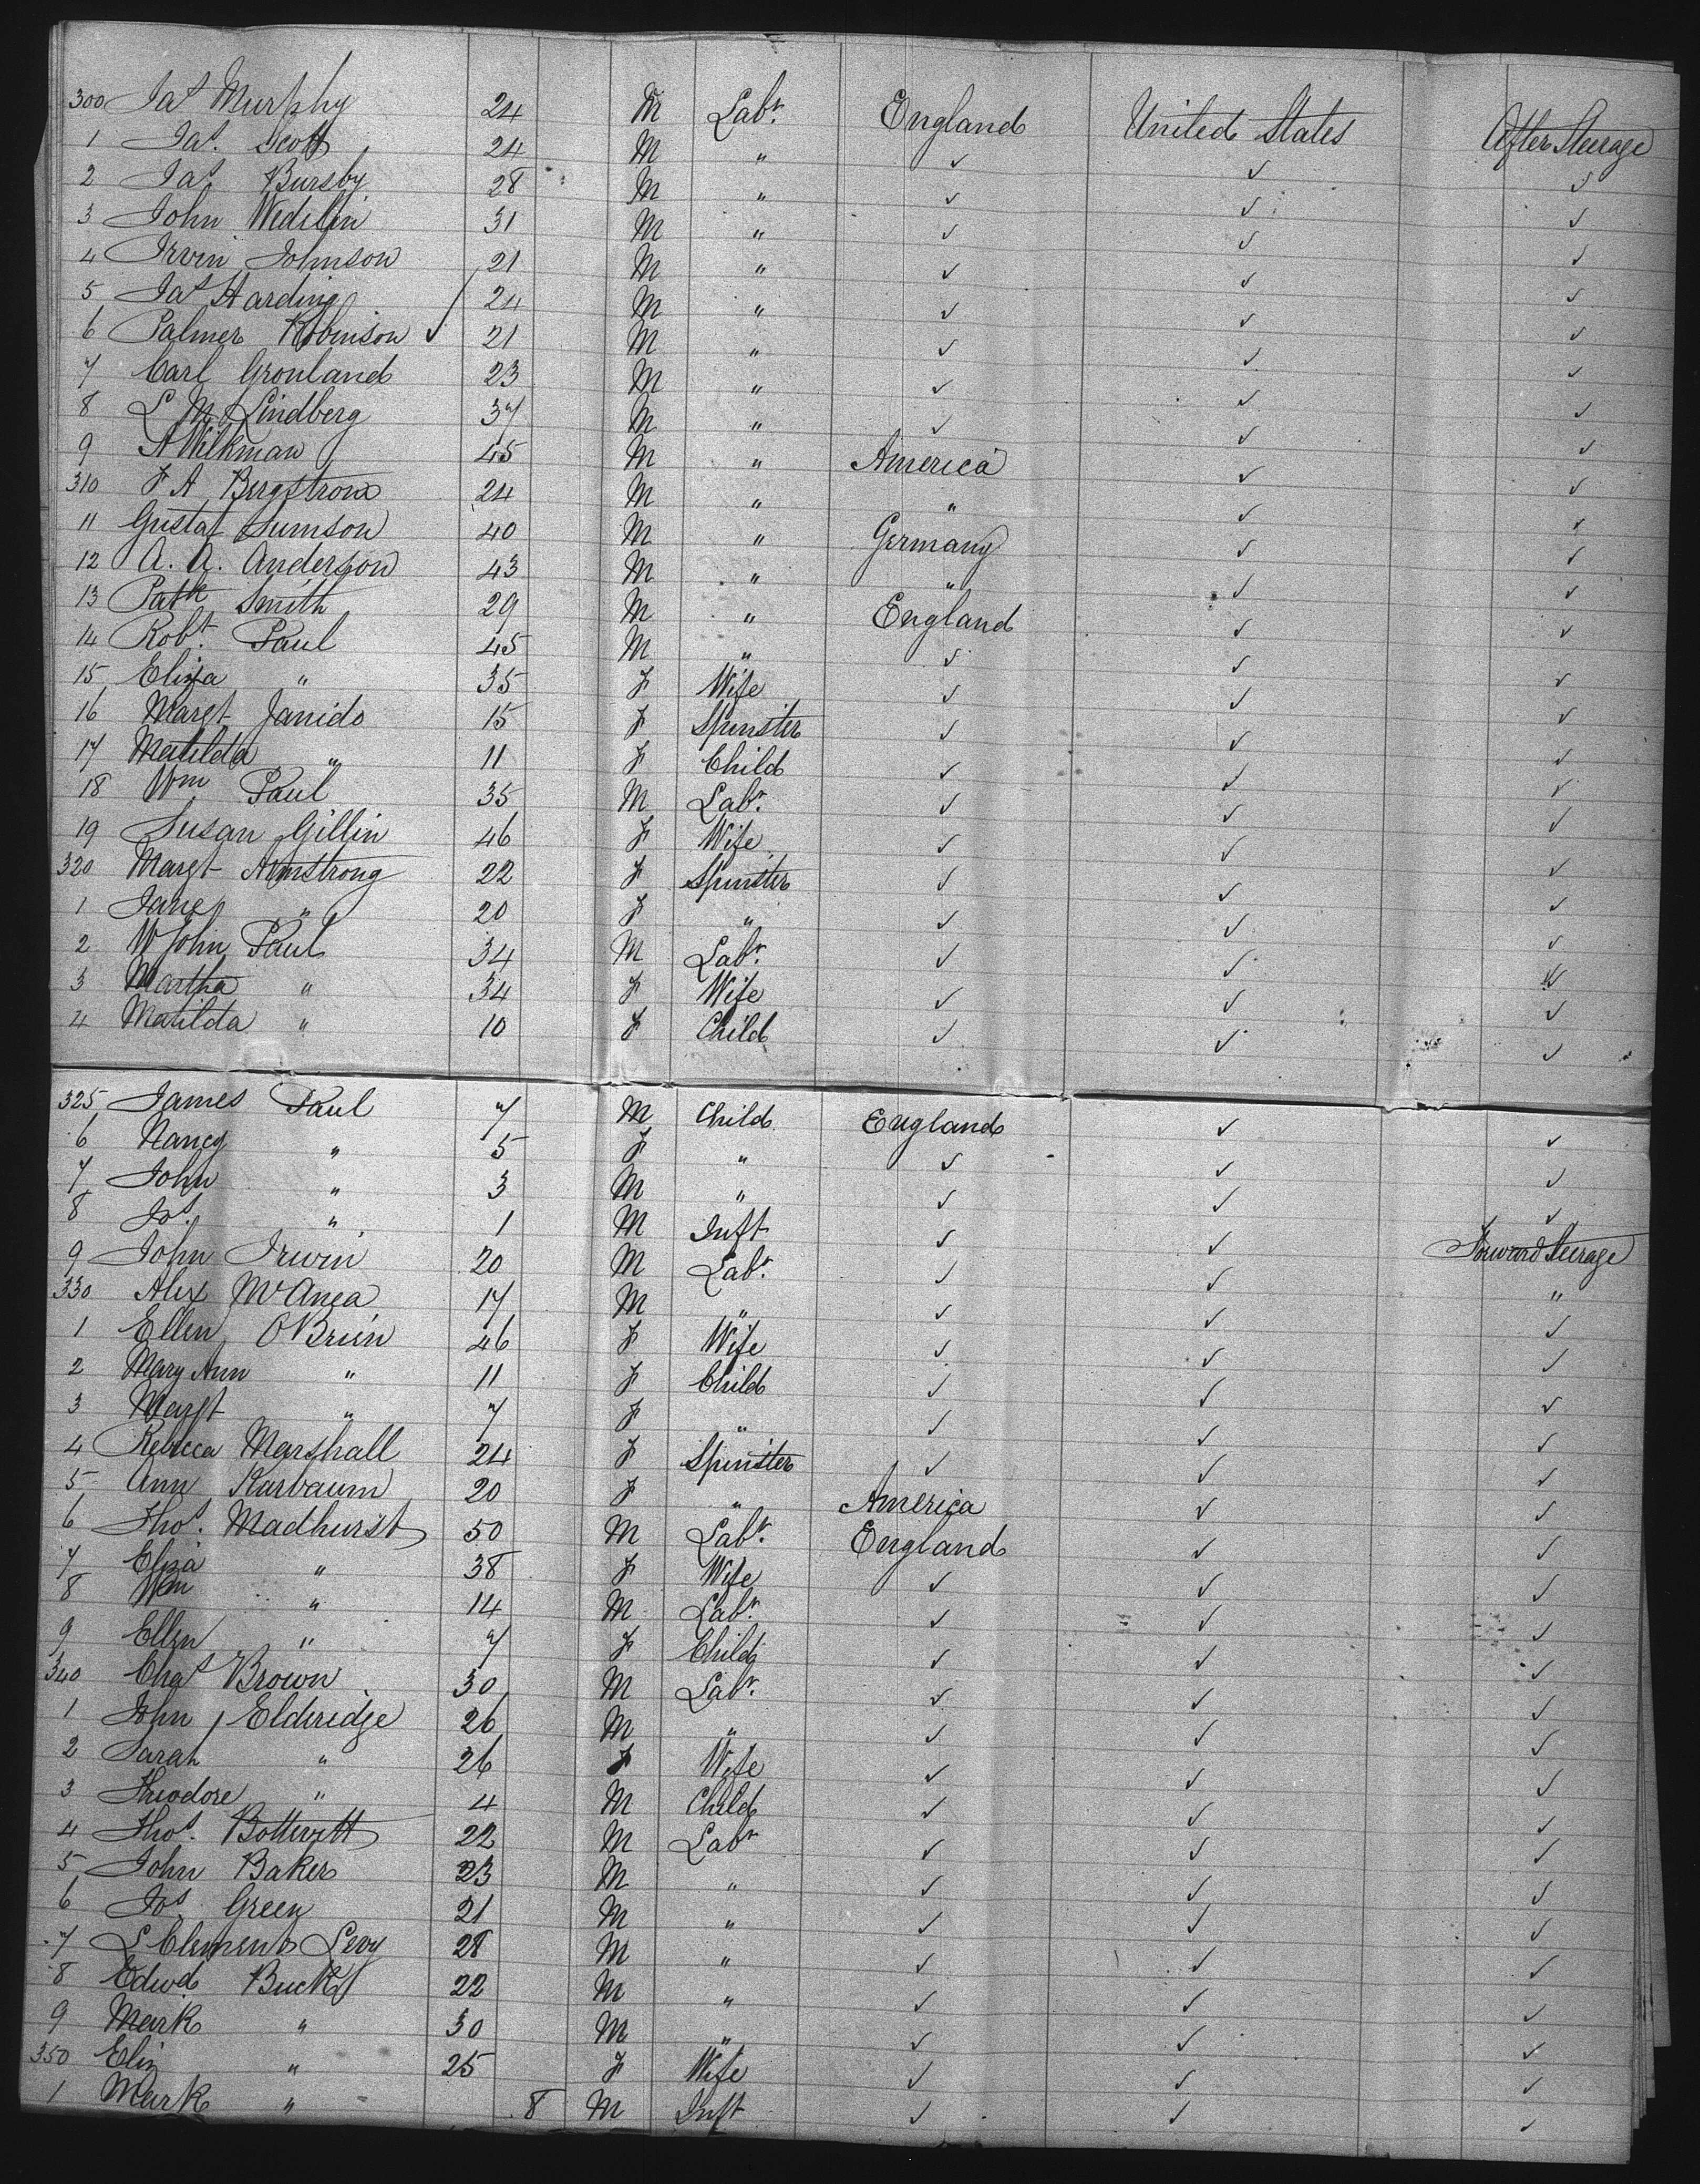 300 Jas Murphy 24 M Labr. England United States After Steerage
1 Jas. Scott 24 M " ✓ ✓ ✓
2 Jas Bursby 28 M " ✓ ✓ ✓
3 John 31 M " ✓ ✓ ✓
4 Irvin Johnson 21 M " ✓ ✓ ✓
5 Jas Harding 24 M " ✓ ✓ ✓
6 Palmer Robinson ✓ 21 M " ✓ ✓ ✓
7 Carl Gronland 23 M " ✓ ✓ ✓
8 L M Lindberg 37 M " ✓ ✓ ✓
9 A Wilkman 45 M " America ✓ ✓
310 F A Bergstrom 24 M " " ✓ ✓
11 Gustaf Sumson 40 M " Germany ✓ ✓
12 A. A. Anderson 43 M " " ✓ ✓
13 Patk Smith 29 M " England ✓ ✓
14 Robt. Paul 45 M " ✓ ✓ ✓
15 Eliza " 35 F Wife ✓ ✓ ✓
16 Margt Janido 15 F Spinster ✓ ✓ ✓
17 Matilda " 11 F Child ✓ ✓ ✓
18 Wm Paul 35 M Labr. ✓ ✓ ✓
19 Susan Gillin 46 F Wife ✓ ✓ ✓
320 Margt Armstrong 22 F Spinster ✓ ✓ ✓
1 Jane " 20 F " ✓ ✓ ✓
2 W John Paul 34 M Labr. ✓ ✓ ✓
3 Martha " 34 F Wife ✓ ✓ ✓
4 Matilda " 10 F Child ✓ ✓ ✓
325 James Paul 7 M Child England ✓ ✓
6 Nancy " 5 F " ✓ ✓ ✓
7 John " 3 M " ✓ ✓ ✓
8 Jos. " 1 M Inft ✓ ✓ Forward Steerage
9 John Irwin 20 M Labr. ✓ ✓ "
330 Alex McAnea 17 M " ✓ ✓ ✓
1 Ellen OBrien 46 F Wife ✓ ✓ ✓
2 Mary Ann " 11 F Child ✓ ✓ ✓
3 Margt " 7 F " ✓ ✓ ✓
4 Rebecca Marshall 24 F Spinster ✓ ✓ ✓
5 Ann Karbaum 20 F " America ✓ ✓
6 Thos. Madhurst 50 M Labr. England ✓ ✓
7 Eliza " 38 F Wife ✓ ✓ ✓
8 Wm " 14 M Labr. ✓ ✓ ✓
9 Ellen " 7 F Child ✓ ✓ ✓
340 Chas Brown 30 M Labr. ✓ ✓ ✓
1 John Elderidge 26 M " ✓ ✓ ✓
2 Sarah " 26 F Wife ✓ ✓ ✓
3 Theodore " 4 M Child ✓ ✓ ✓
4 Thos. Botteritt 22 M Labr ✓ ✓ ✓
5 John Baker 23 M " ✓ ✓ ✓
6 Jos Green 21 M " ✓ ✓ ✓
7 L Clement Levy 28 M " ✓ ✓ ✓
8 Edwd Buck 22 M " ✓ ✓ ✓
9 Mark " 30 M " ✓ ✓ ✓
350 Eliz " 25 F Wife ✓ ✓ ✓
1 Mark " 8 M Inft ✓ ✓ ✓